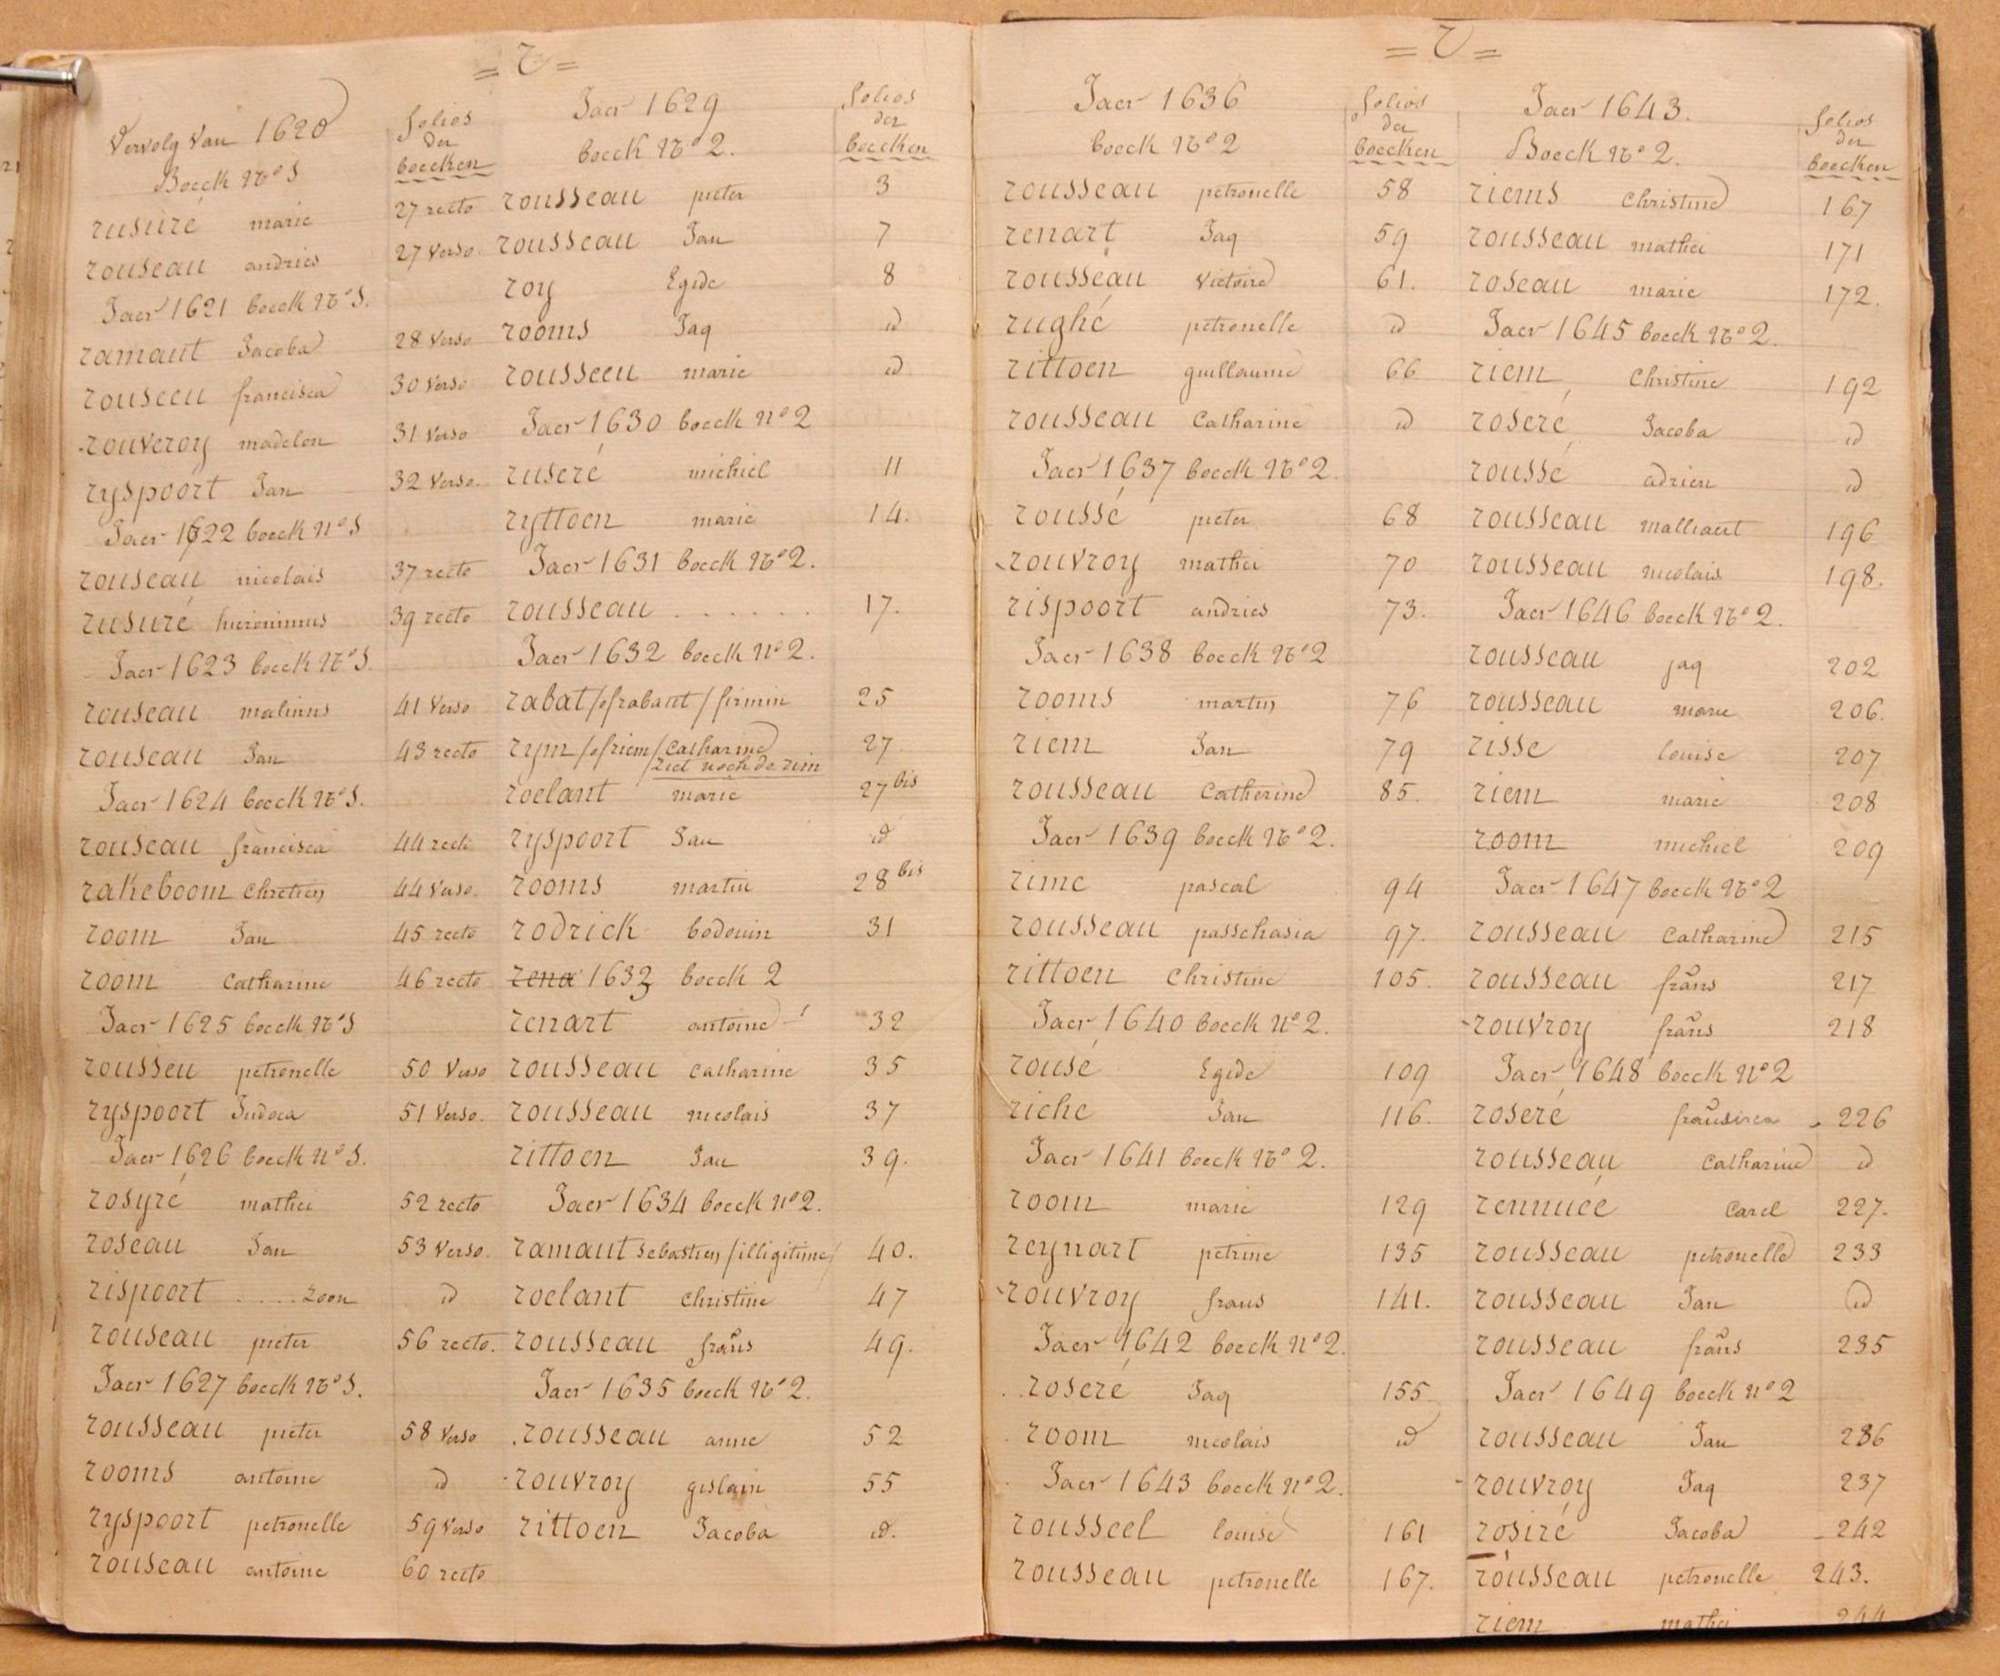 = r =
Vervolg van 1620
Boeck Nº 1
folios
der
boecken
rusuré marie 27 recto
rouseau andries 27 verso
Jaer 1621 boeck Nº 1.
ramaut Jacoba 28 verso
rouseeu francisca 30 verso
rouveroy madelon 31 verso
ryspoort Jan 32 verso.
Jaer 1622 boeck Nº 1
rouseau nicolais 37 recto
rusuré hieronimus 39 recto
Jaer 1623 boeck Nº 1.
rouseau malinus 41 verso
rouseau Jan 43 recto
Jaer 1624 boeck Nº 1.
rouseau francisca 44 recto
rakeboom Chretien 44 verso.
room Jan 45 recto
room Catharine 46 recto
Jaer 1625 boeck Nº 1
rousseu petronelle 50 verso
ryspoort Judoca 51 verso.
Jaer 1626 boeck Nº 1.
rosyré mathei 52 recto
roseau Jan 53 verso.
rispoort ..... zoon id
rouseau pieter 56 recto.
Jaer 1627 boeck Nº 1.
rousseau pieter 58 verso
rooms antoine id
ryspoort petronelle 59 verso
rouseau antoine 60 recto
Jaer 1629
boeck Nº 2.
folios
der
boecken
rousseau pieter 3
rousseau Jan 7
roy Egide 8
rooms Jaq id
rousseeu marie id
Jaer 1630 boeck Nº 2
ruseré michiel 11
ryttoen marie 14.
Jaer 1631 boeck Nº 2.
rousseau ....... 17.
Jaer 1632 boeck Nº 2.
rabat /of rabant/ firmin 25
rym /of riem/ Catharine 27
ziet noch de rim
roelant marie 27 bis
ryspoort Jan id
rooms martin 28 bis
rodrick bodouin 31
1633 boeck 2
renart antoine 32
rousseau catharine 35
rousseau nicolais 37
rittoen Jan 39.
Jaer 1634 boeck Nº 2.
ramaut sebastien /illigitime/ 40.
roelant christine 47
rousseau frans 49.
Jaer 1635 boeck Nº 2.
rousseau anne 52
rouvroy gislain 55
rittoen Jacoba id.
= r =
Jaer 1636
boeck Nº 2
folios
der
boecken
rousseau petronelle 58
renart Jaq 59
rousseau victoire 61.
rughé petronelle id
rittoen guillaume 66
rousseau Catharine id
Jaer 1637 boeck Nº 2.
roussé pieter 68
rouvroy mathei 70
rispoort andries 73.
Jaer 1638 boeck Nº 2
rooms martin 76
riem Jan 79
rousseau Catherine 85.
Jaer 1639 boeck Nº 2.
rime pascal 94
rousseau passchasia 97.
rittoen Christine 105.
Jaer 1640 boeck Nº 2.
rousé Egide 109
riche Jan 116.
Jaer 1641 boeck Nº 2.
room marie 129
reynart petrine 135
rouvroy frans 141.
Jaer 1642 boeck Nº 2.
roseré Jaq 155
room nicolais id
Jaer 1643 boeck Nº 2.
rousseel louise 161
rousseau petronelle 167.
Jaer 1643.
Boeck Nº 2.
folios
der
boecken
riems Christine 167
rousseau mathei 171
roseau marie 172.
Jaer 1645 boeck Nº 2.
riem Christine 192
roseré Jacoba id
roussé adrien id
rousseau malliaert 196
rousseau nicolais 198.
Jaer 1646 boeck Nº 2.
rousseau jaq 202
rousseau marie 206.
risse louise 207
riem marie 208
room michiel 209
Jaer 1647 boeck Nº 2
rousseau Catharine 215
rousseau frans 217
rouvroy frans 218
Jaer 1648 boeck Nº 2
roseré 226
rousseau Catharine id
rennucé Carel 227.
rousseau petronelle 233
rousseau Jan id
rousseau frans 235
Jaer 1649 boeck Nº 2
rousseau Jan 236
rouvroy Jaq 237
rosiré Jacoba 242
rousseau petronelle 243.
riem mathei 244